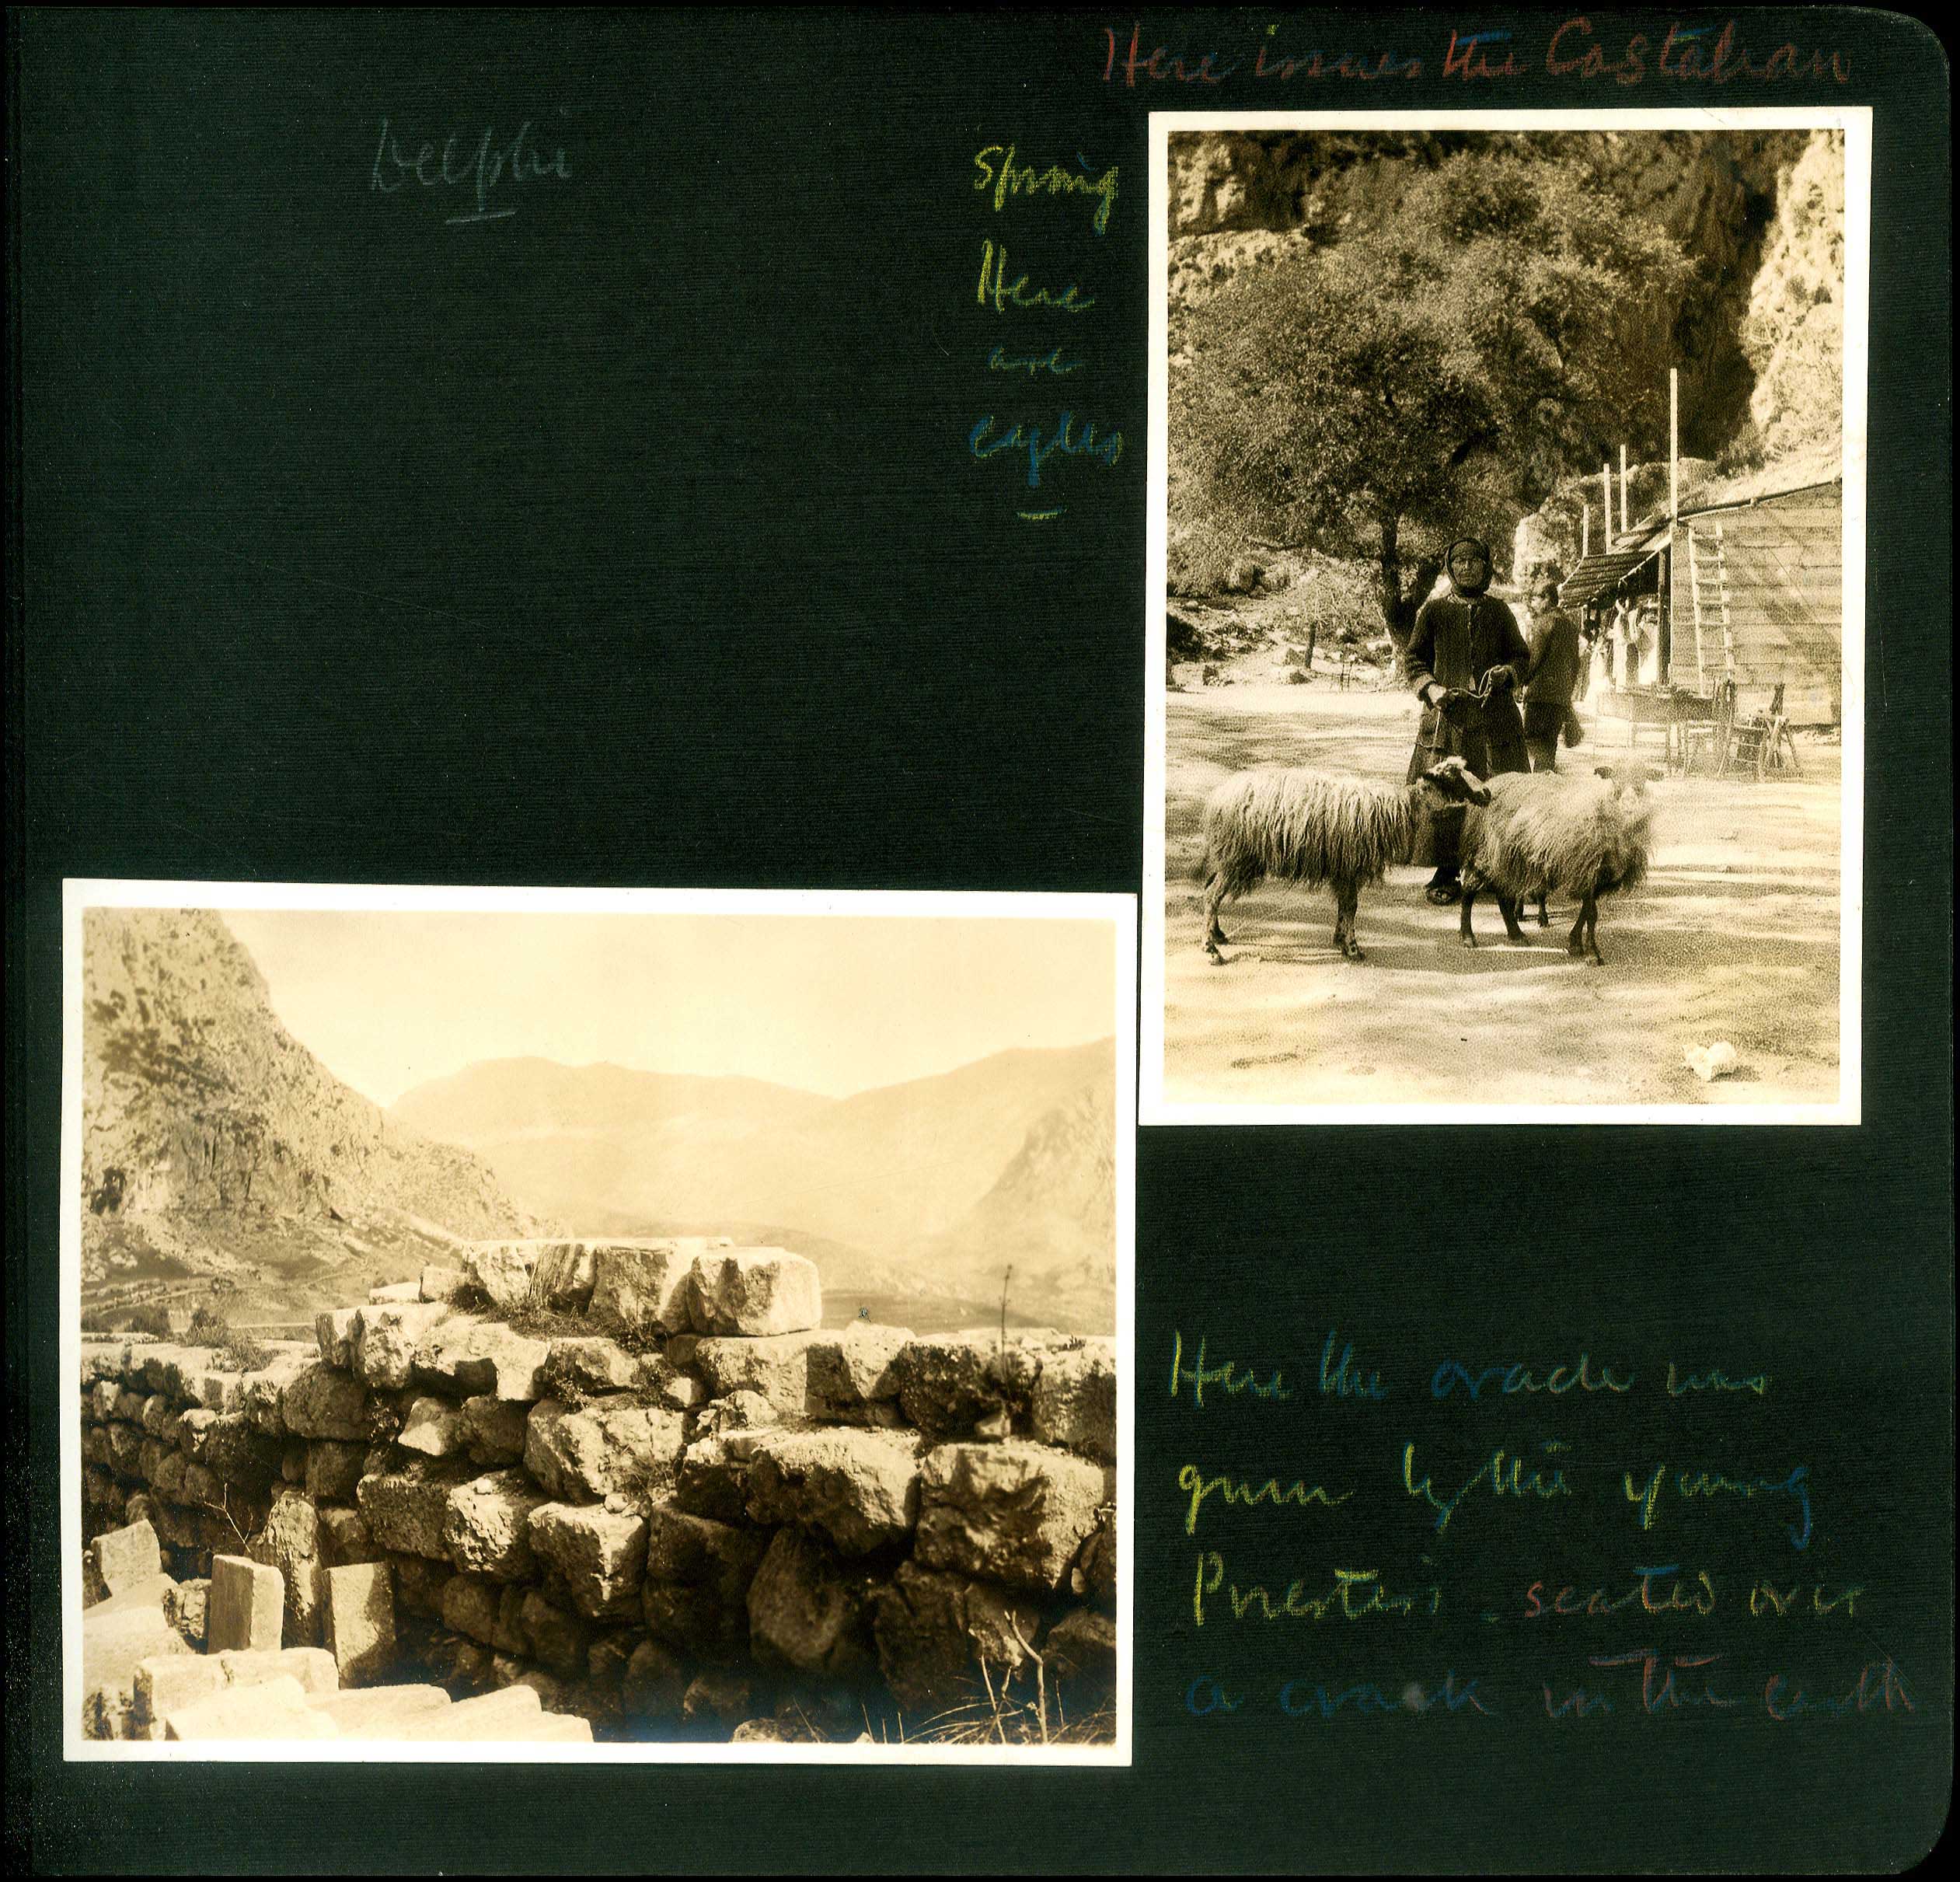 Here issues the Castalian
Delphi
Spring
Here
are
eagles
Here the oracle was
given by the young
Priestess - seated over
a crack in the earth